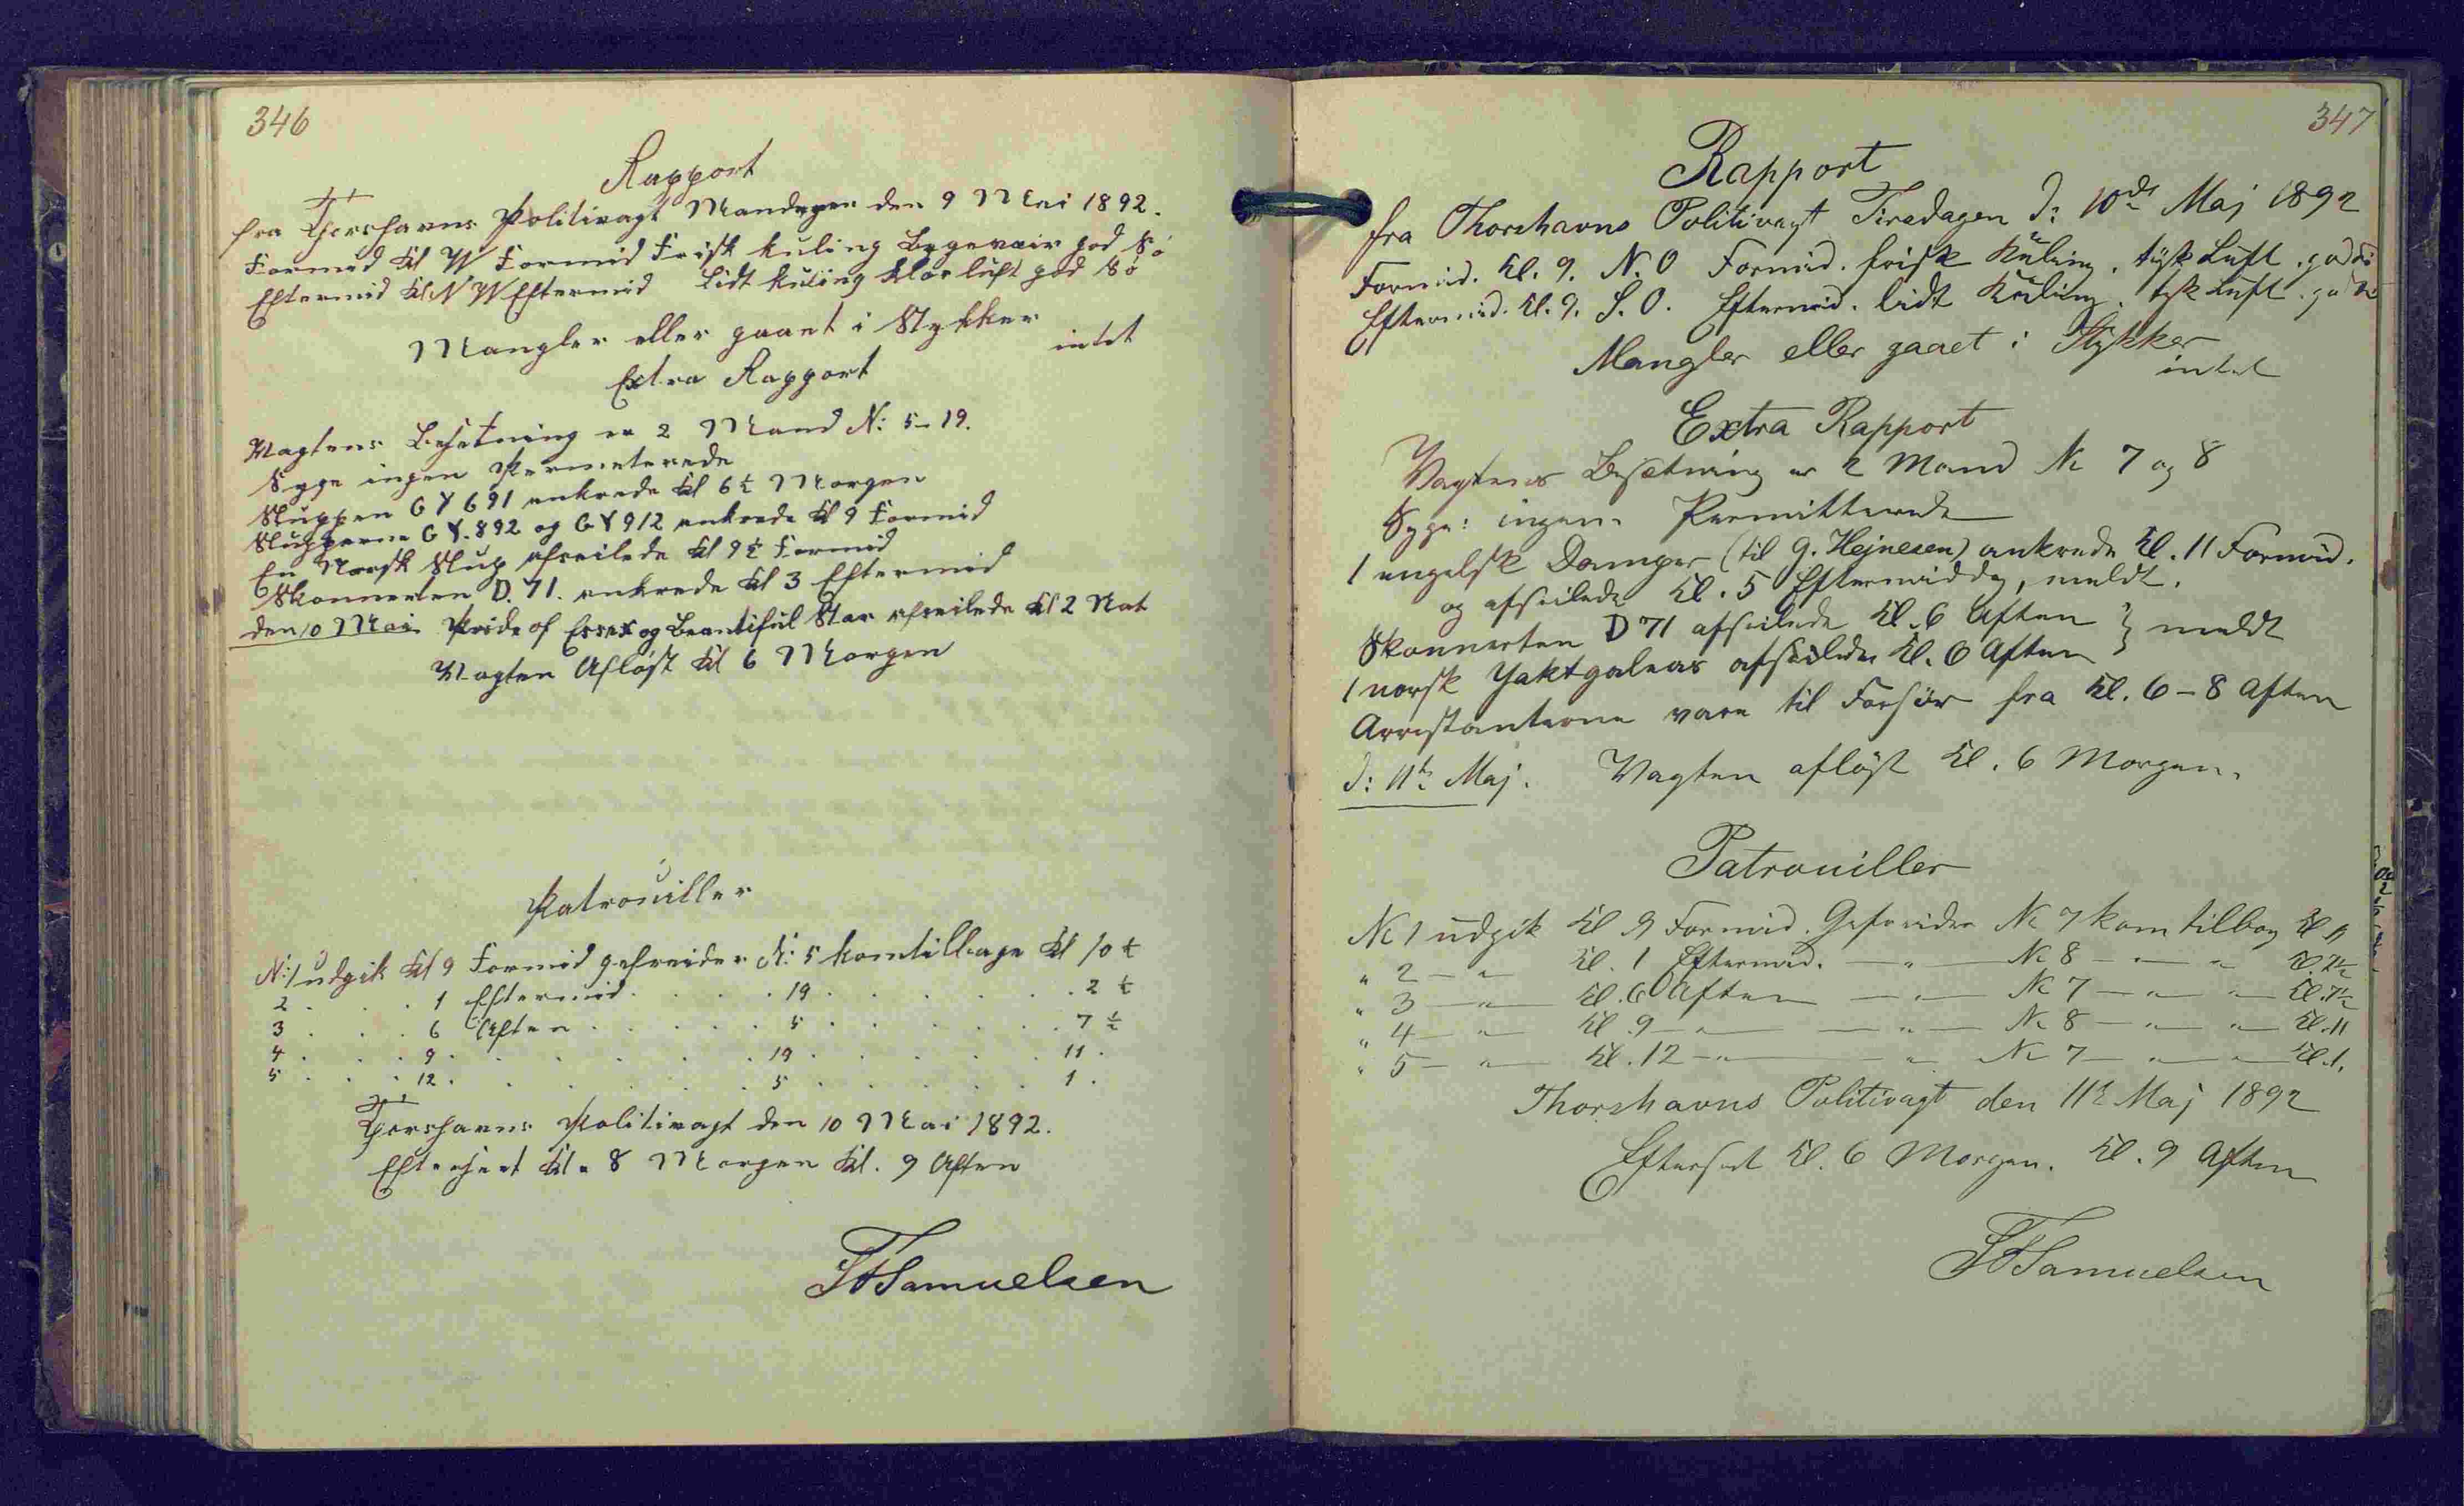 346
Rapport
fra Thorshavns Politivagt Mandagen den 9 Mai 1892.
Formid Kl W Formid Frisk kuling Bygevair god Sö
Eftermid Kl N W Eftermid Lidt kuling klar luft god Sö
Mangler eller gaaet i Stykker
intet
Extra Rapport
Vagtens Besetning er 2 Mand N: 5-19.
Syge ingen Permeterede
Sluppen G Y 691 ankrede Kl 6½ Morgen
Slupperne G Y. 892 og G Y 912 ankrede Kl 9 Formid
En Norsk Slup afseilede Kl 9½ Formid
Skonnerten D. 71. ankrede Kl 3 Eftermid
den 10 Mai Pride of Essex og Beautiful Star afseilede Kl 2 Nat
Vagten Aflöst Kl 6 Morgen
Patrouiller
N: 1 udgik Kl 9 Formid gefreider N: 5 kom tilbage Kl 10½
2 . . . 1 Eftermid . . . . 19 . . . . . . 2½
3 . . . 6 Aften . . . . . 5 . . . . . . 7½
4 . . . 9 . . . . . . 19 . . . . . 11 .
5 . . . 12 . . . . . . 5 . . . . . 1 .
Thorshavns Politivagt den 10 Mai 1892.
Efterseet Kl. 8 Morgen Kl. 9 Aften
Samuelsen
347
Rapport
fra Thorshavns Politivagt Tirsdagen d: 10de Maj 1892
Formid. Kl. 9. N. O Formid. frisk Kuling. tyk Luft. god
Eftermid. Kl. 9. S. O. Eftermid. lidt Kuling. tyk Luft.
Mangler eller gaaet i Stykker
intet
Extra Rapport
Vagtens Besætning er 2 Mand No 7 og 8
Syge: ingen. Permitterede
1 engelsk Damper (til G. Hejnesen) ankrede Kl. 11 Formid.
og afseilede Kl. 5 Eftermiddg, meldt.
Skonnerten D 71 afseilede Kl. 6 Aften } meldt
1 norsk Jaktgaleas afseilede Kl. 6 Aften
Arrestanterne vare til Forhör fra Kl. 6-8 Aften
d: 11te Maj. Vagten aflöst Kl. 6 Morgen.
Patrouiller
No 1 udgik Kl 9 Formid. Gefreider No 7 kom tilbag Kl 11
" 2 — " Kl. 1 Eftermid. — " — No 8 — " — " Kl. 2½
" 3 — " — Kl. 6 Aften — " — No 7 — " — " — Kl. 7½
" 4 — " Kl. 9 — " — — " — No 8 — " — " — Kl. 11
" 5 — " — Kl. 12 — " — — " No 7 — " — " — Kl. 1.
Thorshavns Politivagt den 11te Maj 1892
Efterset Kl. 6 Morgen. Kl. 9 Aften
Samuelsen